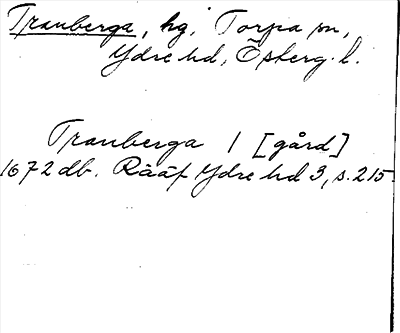 Tranberga, hg, Torpa sn,
Ydre hd, Österg. l.
Tranberga 1 [gård]
1672 db. Rääf Ydre hd 3, s. 215.